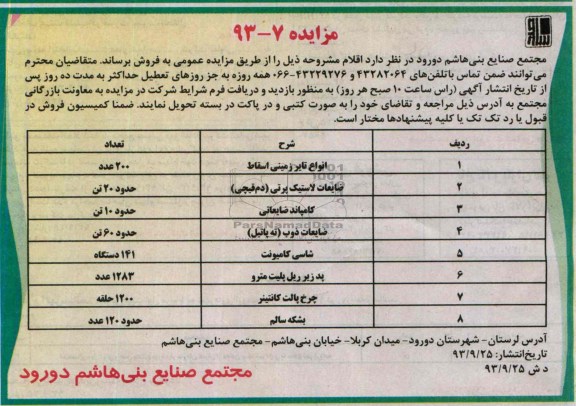 مزایده ۷-۹۳
مجتمع صنایع بنی‌هاشم دورود در نظر دارد اقلام مشروحه ذیل را از طریق مزایده عمومی به فروش برساند. متقاضیان محترم
می‌توانند ضمن تماس باتلفن‌های ۴۳۲۸۲۰۶۴ و ۴۳۲۲۹۲۷۶-۰۶۶ همه روزه به جز روزهای تعطیل حداکثر به مدت ده روز پس
از تاریخ انتشار آگهی (راس ساعت ۱۰ صبح هر روز) به منظور بازدید و دریافت فرم شرایط شرکت در مزایده به معاونت بازرگانی
مجتمع به آدرس ذیل مراجعه و تقاضای خود را به صورت کتبی و در پاکت در بسته تحویل نمایند. ضمنا کمیسیون فروش در
قبول یا رد تک تک یا کلیه پیشنهادها مختار است.
ردیف شرح تعداد
۱ انواع تایر زمینی اسقاط ۲۰۰ عدد
۲ ضایعات لاستیک پرتی (دم‌قیچی) حدود ۲۰ تن
۳ کامپاند ضایعاتی حدود ۱۰ تن
ParsNamadData
۴ ضایعات ذوب (ته پاتیل) حدود ۶۰ تن
۵ شاسی کامیونت ۱۴۱ دستگاه
۶ پد زیر ریل پلیت مترو ۱۲۸۳ عدد
۷ چرخ پالت کانتینر ۱۲۰۰ حلقه
۸ بشکه سالم حدود ۱۲۰ عدد
آدرس لرستان- شهرستان دورود- میدان کربلا- خیابان بنی‌هاشم- مجتمع صنایع بنی‌هاشم
تاریخ انتشار: ۹۳/۹/۲۵
د ش ۹۳/۹/۲۵
مجتمع صنایع بنی‌هاشم دورود